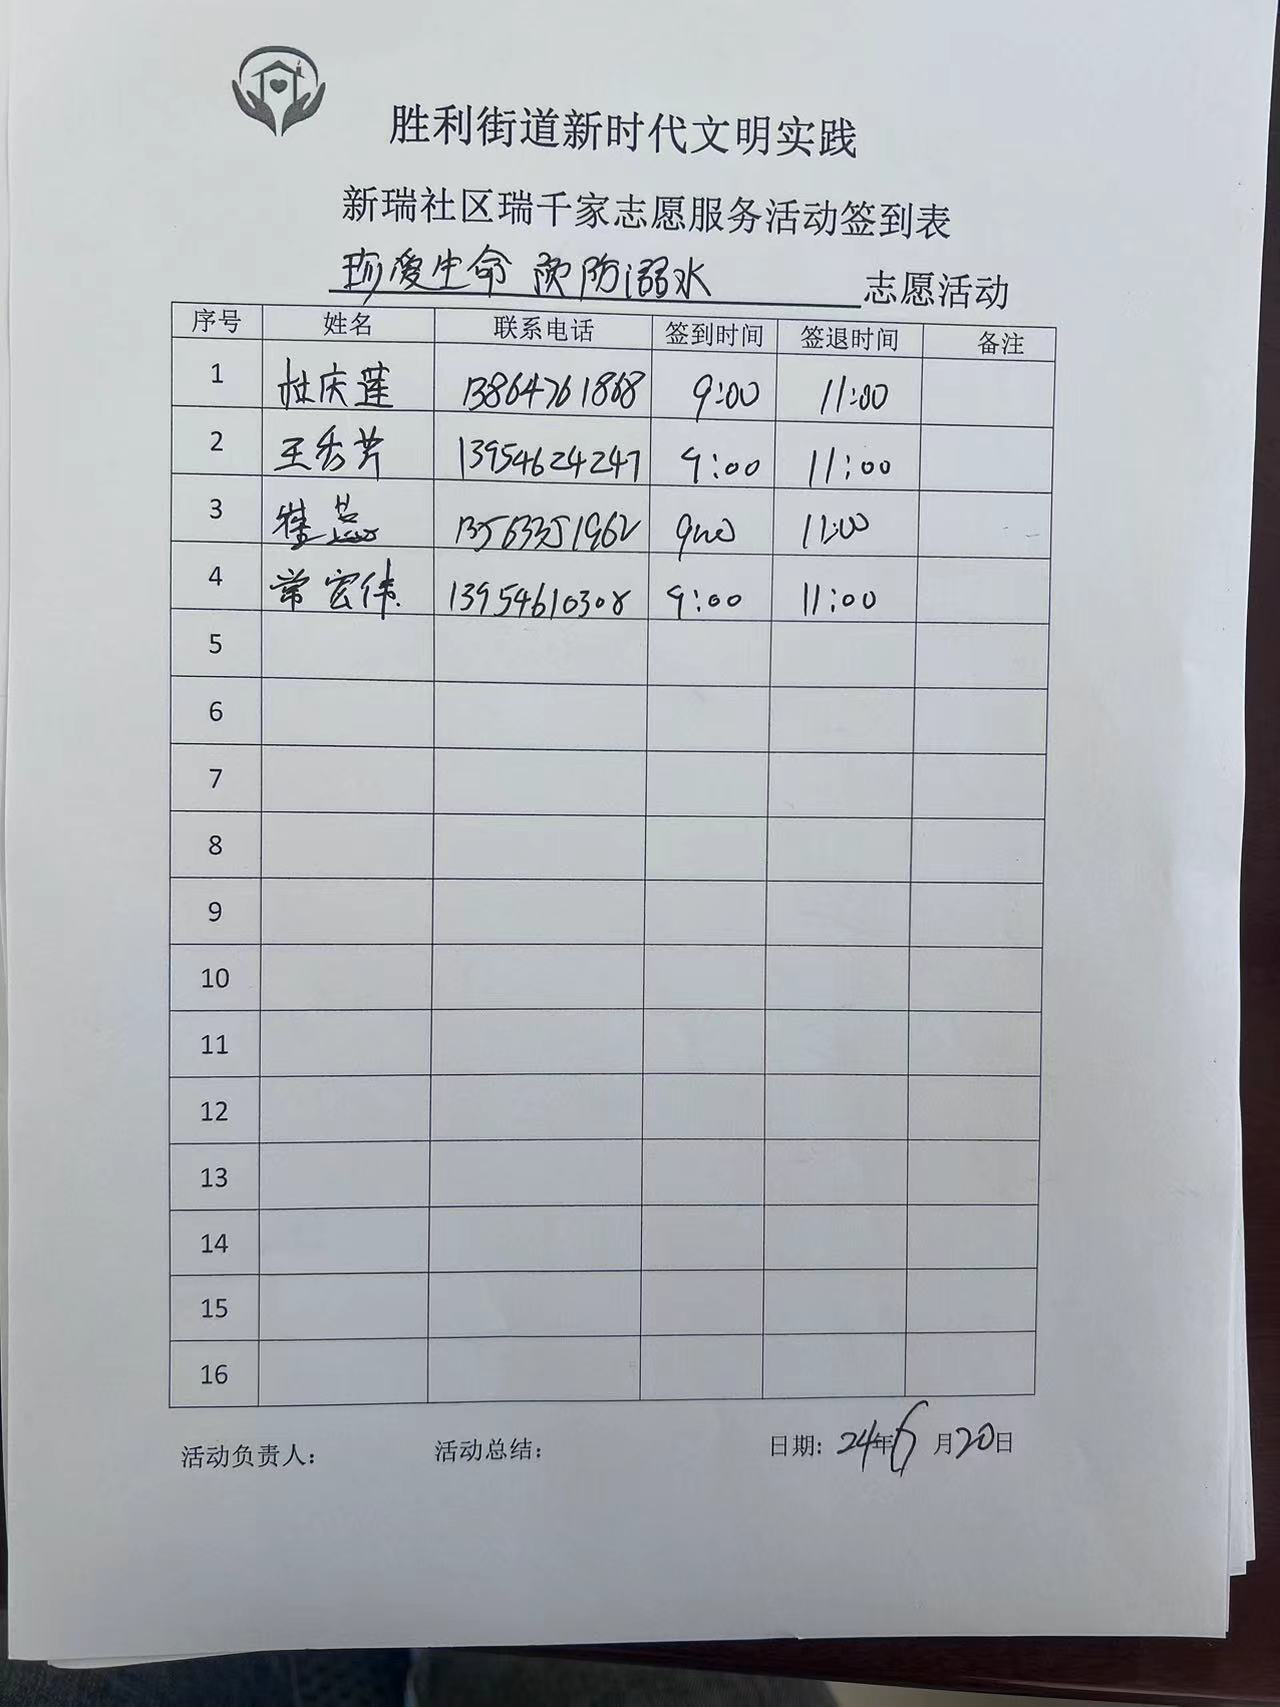 胜利街道新时代文明实践
新瑞社区瑞千家志愿服务活动签到表
珍爱生命 预防溺水 志愿活动
序号 姓名 联系电话 签到时间 签退时间 备注
1 杜庆莲 13864761868 9:00 11:00
2 王秀芹 13954624247 9:00 11:00
3 13563351962 9:00 11:00
4 常宏伟 13954610308 9:00 11:00
5
6
7
8
9
10
11
12
13
14
15
16
活动负责人: 活动总结: 日期: 24年6月20日